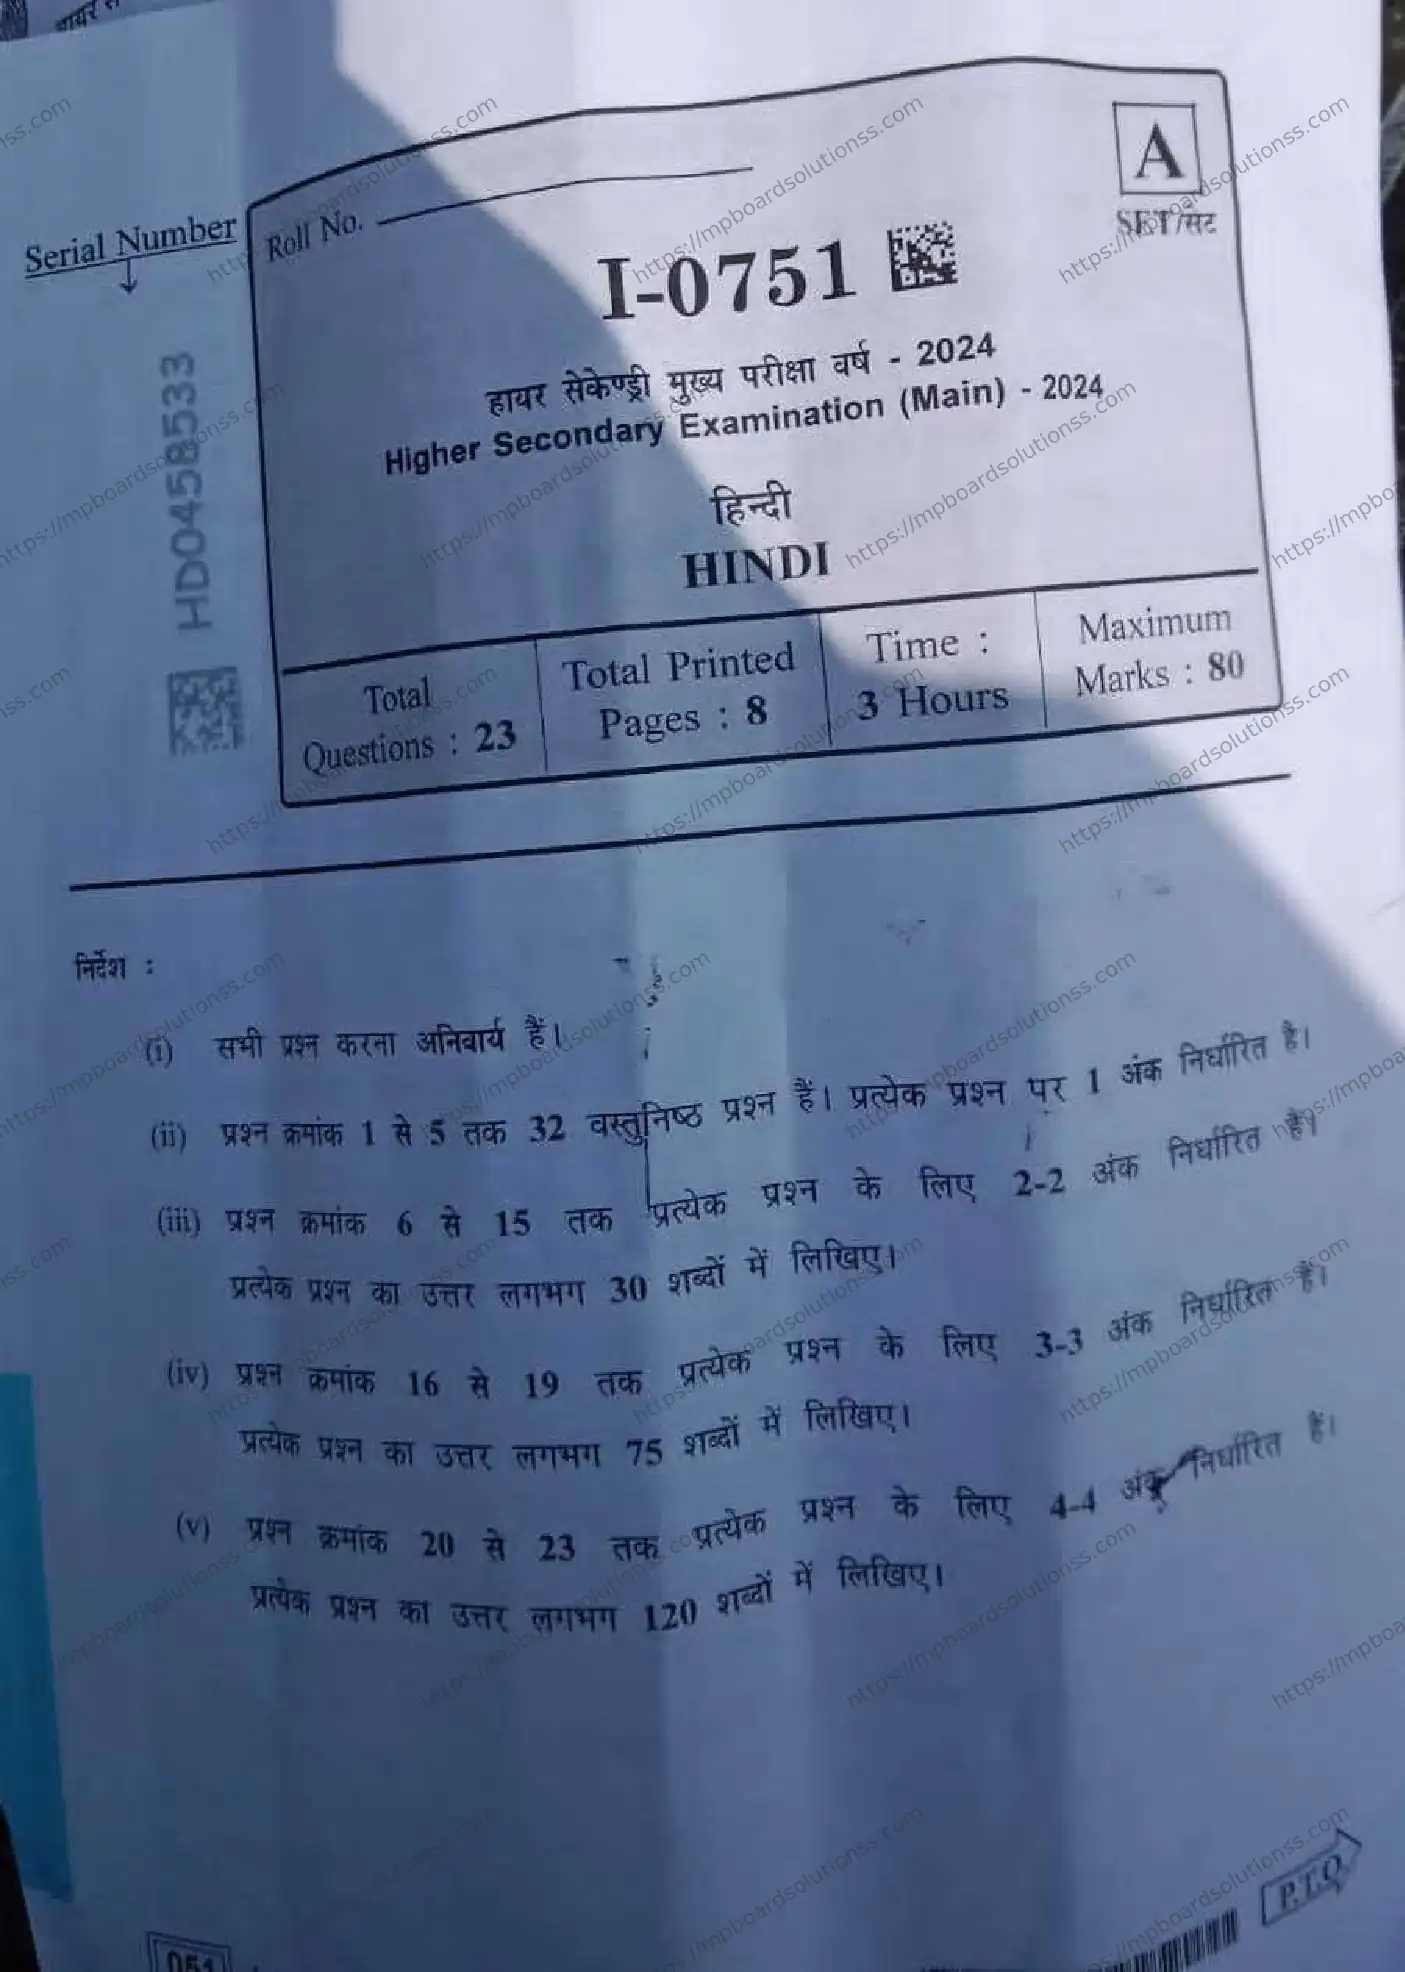 A
SET/सेट
Serial Number
Roll No.
I-0751
HD0458533
हायर सेकेण्ड्री मुख्य परीक्षा वर्ष - 2024
Higher Secondary Examination (Main) - 2024
हिन्दी
HINDI
Total Questions : 23
Total Printed Pages : 8
Time : 3 Hours
Maximum Marks : 80
निर्देश :
(i) सभी प्रश्न करना अनिवार्य हैं।
(ii) प्रश्न क्रमांक 1 से 5 तक 32 वस्तुनिष्ठ प्रश्न हैं। प्रत्येक प्रश्न पर 1 अंक निर्धारित है।
(iii) प्रश्न क्रमांक 6 से 15 तक प्रत्येक प्रश्न के लिए 2-2 अंक निर्धारित हैं।
प्रत्येक प्रश्न का उत्तर लगभग 30 शब्दों में लिखिए।
(iv) प्रश्न क्रमांक 16 से 19 तक प्रत्येक प्रश्न के लिए 3-3 अंक निर्धारित हैं।
प्रत्येक प्रश्न का उत्तर लगभग 75 शब्दों में लिखिए।
(v) प्रश्न क्रमांक 20 से 23 तक प्रत्येक प्रश्न के लिए 4-4 अंक निर्धारित हैं।
प्रत्येक प्रश्न का उत्तर लगभग 120 शब्दों में लिखिए।
P.T.O.
051
https://mpboardsolutionss.com